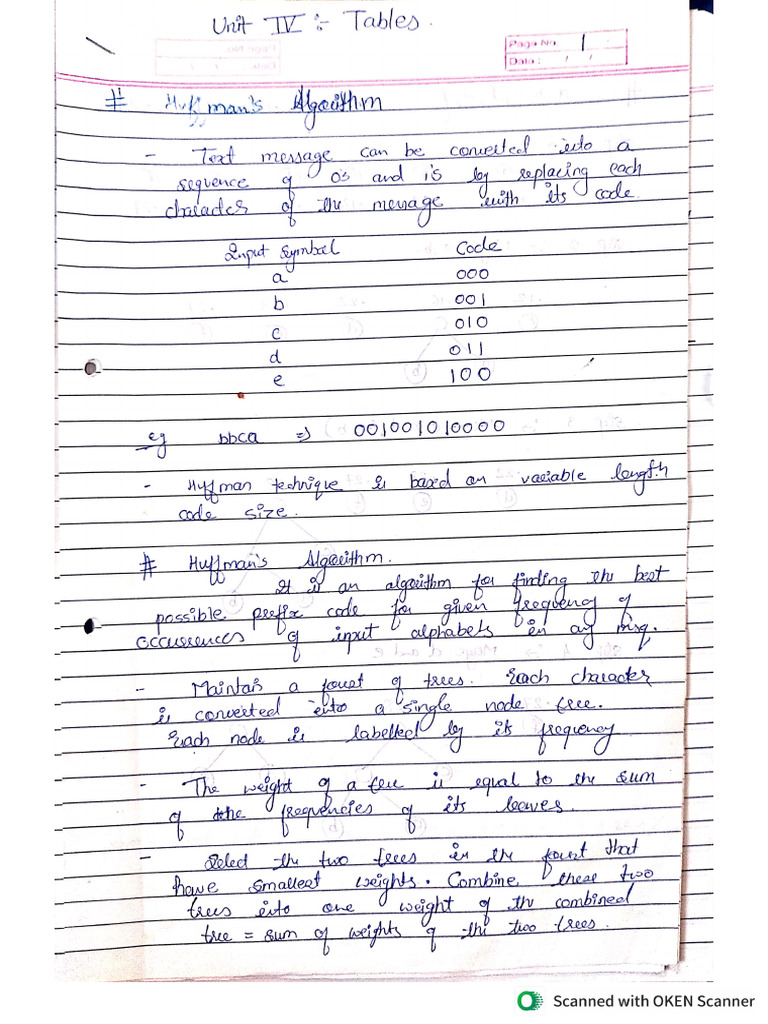 Unit IV :- Tables.
Page No. 1
Date : / /
# Huffman's Algorithm
- Text message can be converted into a
sequence of 0s and 1s by replacing each
character of the message with its code.
Input Symbol Code
a 000
b 001
c 010
d 011
e 100
eg bbca => 001001010000
- Huffman technique is based on variable length
code size.
# Huffman's Algorithm.
It is an algorithm for finding the best
possible prefix code for given frequency of
occurrences of input alphabets in any msg.
- Maintain a forest of trees. Each character
is converted into a single node tree.
Each node is labelled by its frequency
- The weight of a tree is equal to the sum
of the frequencies of its leaves.
- Select the two trees in the forest that
have smallest weights. Combine these two
trees into one weight of the combined
tree = sum of weights of the two trees.
Scanned with OKEN Scanner